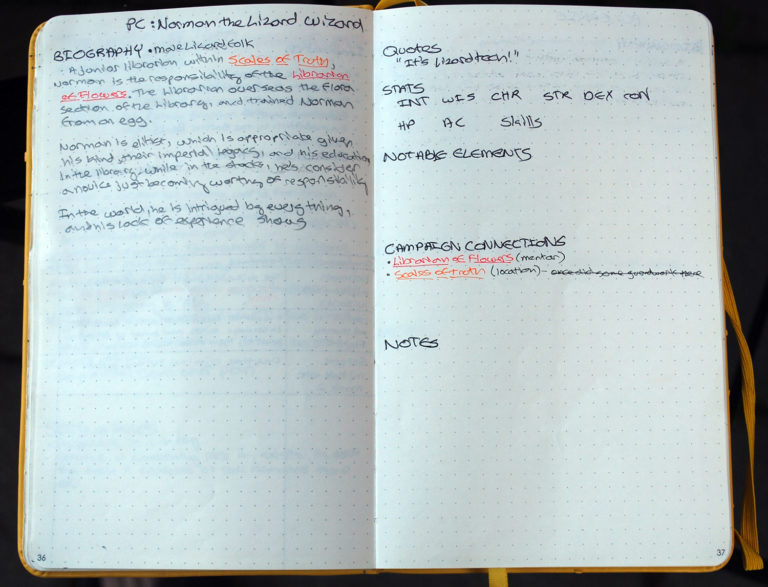 PC: Norman the Lizard Wizard
BIOGRAPHY • male Lizardfolk
- A junior librarian within Scales of Truth,
Norman is the responsibility of the Librarian
of Flowers. The Librarian overseas the Flora
section of the Library, and trained Norman
from an egg.
Norman is elitist, which is appropriate given
his kind, their imperial legacy, and his education
in the library. While in the stacks, he's consider
a novice just becoming worthy of responsibility
In the world, he is intrigued by everything,
and his lack of experience shows
36
Quotes
"It's Lizardtech!"
STATS
INT WIS CHR STR DEX CON
HP AC Skills
NOTABLE ELEMENTS
CAMPAIGN CONNECTIONS
• Librarian of Flowers (mentor)
• Scales of Truth (location) - once did some guardwork there
NOTES
37